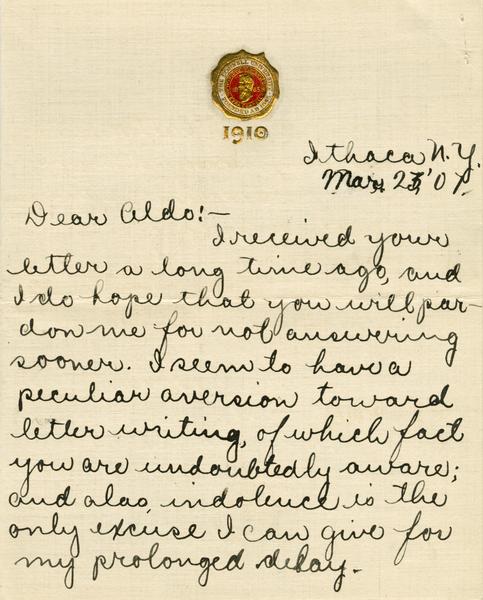 1910
Ithaca N.Y.
Mar. 23, '07.
Dear Aldo:—
I received your
letter a long time ago, and
I do hope that you will par-
don me for not answering
sooner. I seem to have a
peculiar aversion toward
letter writing, of which fact
you are undoubtedly aware;
and alas, indolence is the
only excuse I can give for
my prolonged delay.